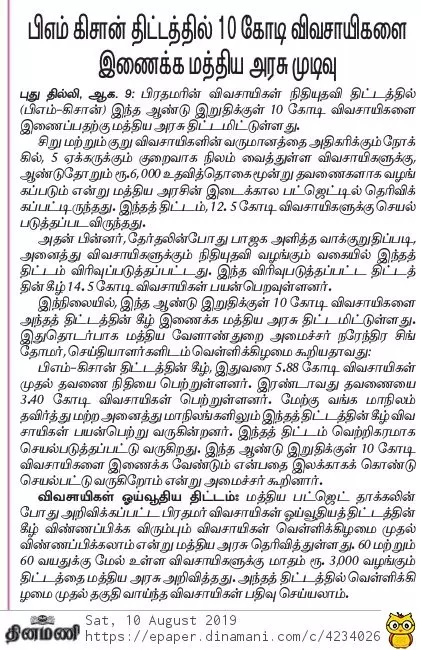 பிஎம் கிசான் திட்டத்தில் 10 கோடி விவசாயிகளை
இணைக்க மத்திய அரசு முடிவு
புது தில்லி, ஆக. 9: பிரதமரின் விவசாயிகள் நிதியுதவி திட்டத்தில்
(பிஎம்-கிசான்) இந்த ஆண்டு இறுதிக்குள் 10 கோடி விவசாயிகளை
இணைப்பதற்கு மத்திய அரசு திட்டமிட்டுள்ளது.
சிறு மற்றும் குறு விவசாயிகளின் வருமானத்தை அதிகரிக்கும் நோக்
கில், 5 ஏக்கருக்கும் குறைவாக நிலம் வைத்துள்ள விவசாயிகளுக்கு,
ஆண்டுதோறும் ரூ.6,000 உதவித்தொகை மூன்று தவணைகளாக வழங்
கப்படும் என்று மத்திய அரசின் இடைக்கால பட்ஜெட்டில் தெரிவிக்
கப்பட்டிருந்தது. இந்தத் திட்டம், 12. 5 கோடி விவசாயிகளுக்கு செயல்
படுத்தப்படவிருந்தது.
அதன் பின்னர், தேர்தலின்போது பாஜக அளித்த வாக்குறுதிப்படி,
அனைத்து விவசாயிகளுக்கும் நிதியுதவி வழங்கும் வகையில் இந்தத்
திட்டம் விரிவுபடுத்தப்பட்டது. இந்த விரிவுபடுத்தப்பட்ட திட்டத்
தின் கீழ் 14. 5 கோடி விவசாயிகள் பயன்பெறவுள்ளனர்.
இந்நிலையில், இந்த ஆண்டு இறுதிக்குள் 10 கோடி விவசாயிகளை
அந்தத் திட்டத்தின் கீழ் இணைக்க மத்திய அரசு திட்டமிட்டுள்ளது.
இதுதொடர்பாக மத்திய வேளாண்துறை அமைச்சர் நரேந்திர சிங்
தோமர், செய்தியாளர்களிடம் வெள்ளிக்கிழமை கூறியதாவது:
பிஎம்-கிசான் திட்டத்தின் கீழ், இதுவரை 5.88 கோடி விவசாயிகள்
முதல் தவணை நிதியை பெற்றுள்ளனர். இரண்டாவது தவணையை
3.40 கோடி விவசாயிகள் பெற்றுள்ளனர். மேற்கு வங்க மாநிலம்
தவிர்த்து மற்ற அனைத்து மாநிலங்களிலும் இந்தத் திட்டத்தின் கீழ் விவ
சாயிகள் பயன்பெற்று வருகின்றனர். இந்தத் திட்டம் வெற்றிகரமாக
செயல்படுத்தப்பட்டு வருகிறது. இந்த ஆண்டு இறுதிக்குள் 10 கோடி
விவசாயிகளை இணைக்க வேண்டும் என்பதை இலக்காகக் கொண்டு
செயல்பட்டு வருகிறோம் என்று அமைச்சர் கூறினார்.
விவசாயிகள் ஓய்வூதிய திட்டம்: மத்திய பட்ஜெட் தாக்கலின்
போது அறிவிக்கப்பட்ட பிரதமர் விவசாயிகள் ஓய்வூதியத் திட்டத்தின்
கீழ் விண்ணப்பிக்க விரும்பும் விவசாயிகள் வெள்ளிக்கிழமை முதல்
விண்ணப்பிக்கலாம் என்று மத்திய அரசு தெரிவித்துள்ளது. 60 மற்றும்
60 வயதுக்கு மேல் உள்ள விவசாயிகளுக்கு மாதம் ரூ. 3,000 வழங்கும்
திட்டத்தை மத்திய அரசு அறிவித்தது. அந்தத் திட்டத்தில் வெள்ளிக்கி
ழமை முதல் தகுதி வாய்ந்த விவசாயிகள் பதிவு செய்யலாம்.
தினமணி
Sat, 10 August 2019
https://epaper.dinamani.com/c/4234026